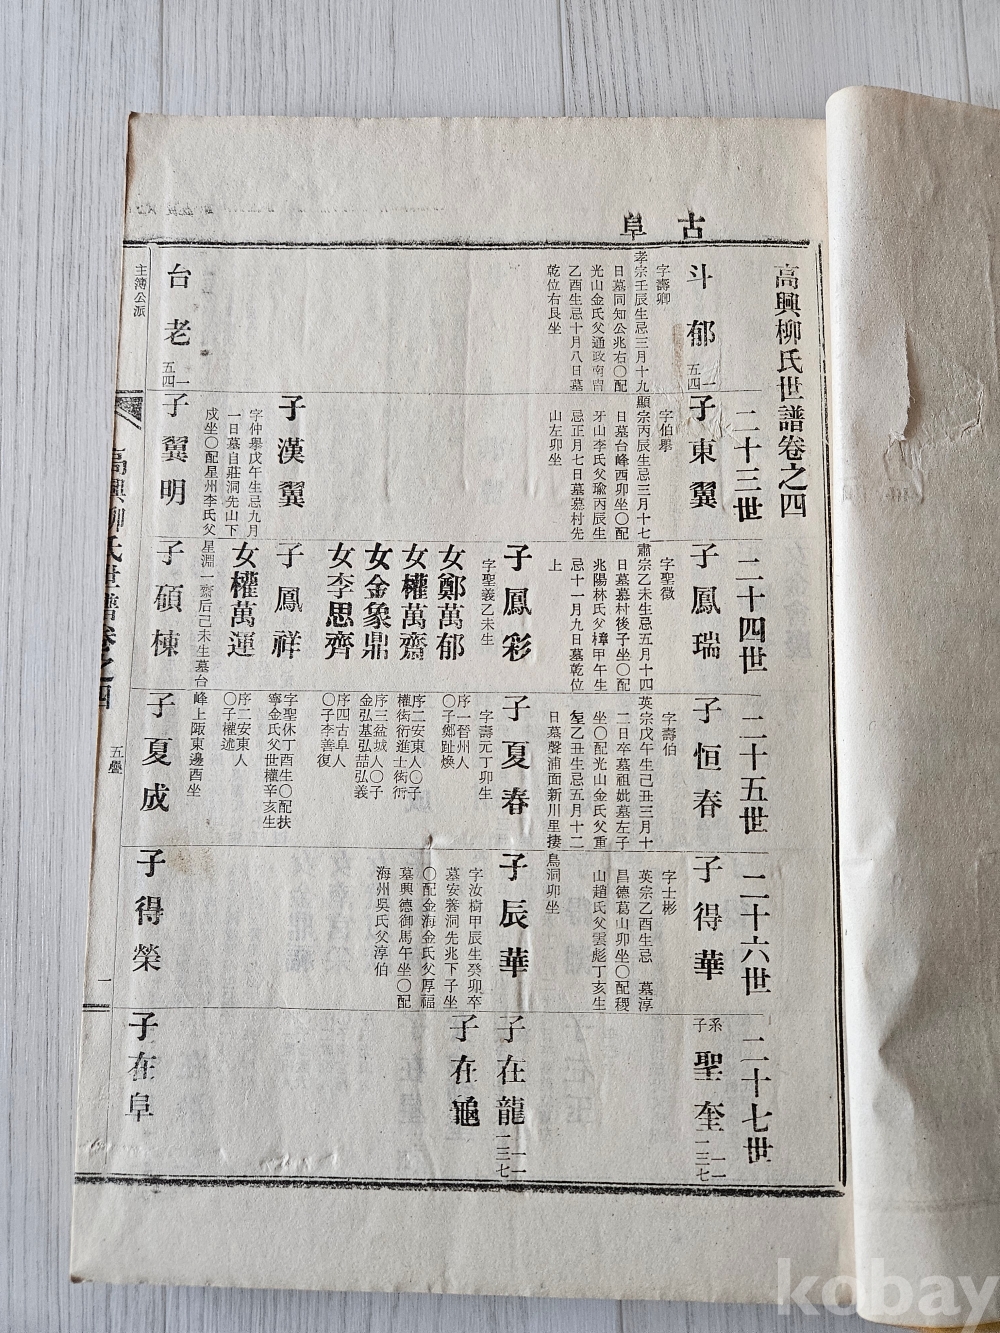 古阜
高興柳氏世譜卷之四
斗郁 一五四
字壽卿
孝宗壬辰生忌三月十九
日墓同知公兆右〇配
光山金氏父通政南冑
乙酉生忌十月八日墓
乾位右艮坐
台老 一五四
主簿公派
二十三世
子東翼
字伯擧
顯宗丙辰生忌三月十七
日墓台峰酉卯坐〇配
牙山李氏父瑜丙辰生
忌正月七日墓慕村先
山左卯坐
子漢翼
字仲擧戊午生忌九月
一日墓自莊洞先山下
戌坐〇配星州李氏父
星淵一齋后己未生墓台
峰上陬東邊酉坐
子翼明
二十四世
子鳳瑞
字聖徵
肅宗乙未生忌五月十四
日墓慕村後子坐〇配
兆陽林氏父樟甲午生
忌十一月九日墓乾位
上
子鳳彩
字聖義乙未生
女鄭萬郁
序一晉州人
〇子鄭趾煥
女權萬齋
序二安東人〇子
權衒衍進士衒衍
女金象鼎
序三益城人〇子
金弘基弘喆弘義
女李思齊
序四古阜人
〇子李善復
子鳳祥
字聖休丁酉生〇配扶
寧金氏父世權辛亥生
女權萬運
序二安東人
〇子權述
子碩棟
二十五世
子恒春
字壽伯
英宗戊午生己丑三月十
二日卒墓祖妣墓左子
坐〇配光山金氏父重
奎乙丑生忌五月十二
日墓聲浦面新川里捿
鳥洞卯坐
子夏春
字壽元丁卯生
子夏成
二十六世
子得華
字士彬
英宗乙酉生忌 墓淳
昌德葛山卯坐〇配稷
山趙氏父雲彪丁亥生
子辰華
字汝樹甲辰生癸卯卒
墓安養洞先兆下子坐
〇配金海金氏父厚福
墓興德御馬午坐〇配
海州吳氏父淳伯
子得榮
二十七世
系子聖奎 一一三七
子在龍 一一三七
子在龜
子在阜
高興柳氏世譜卷之四
五疊
一
kobay